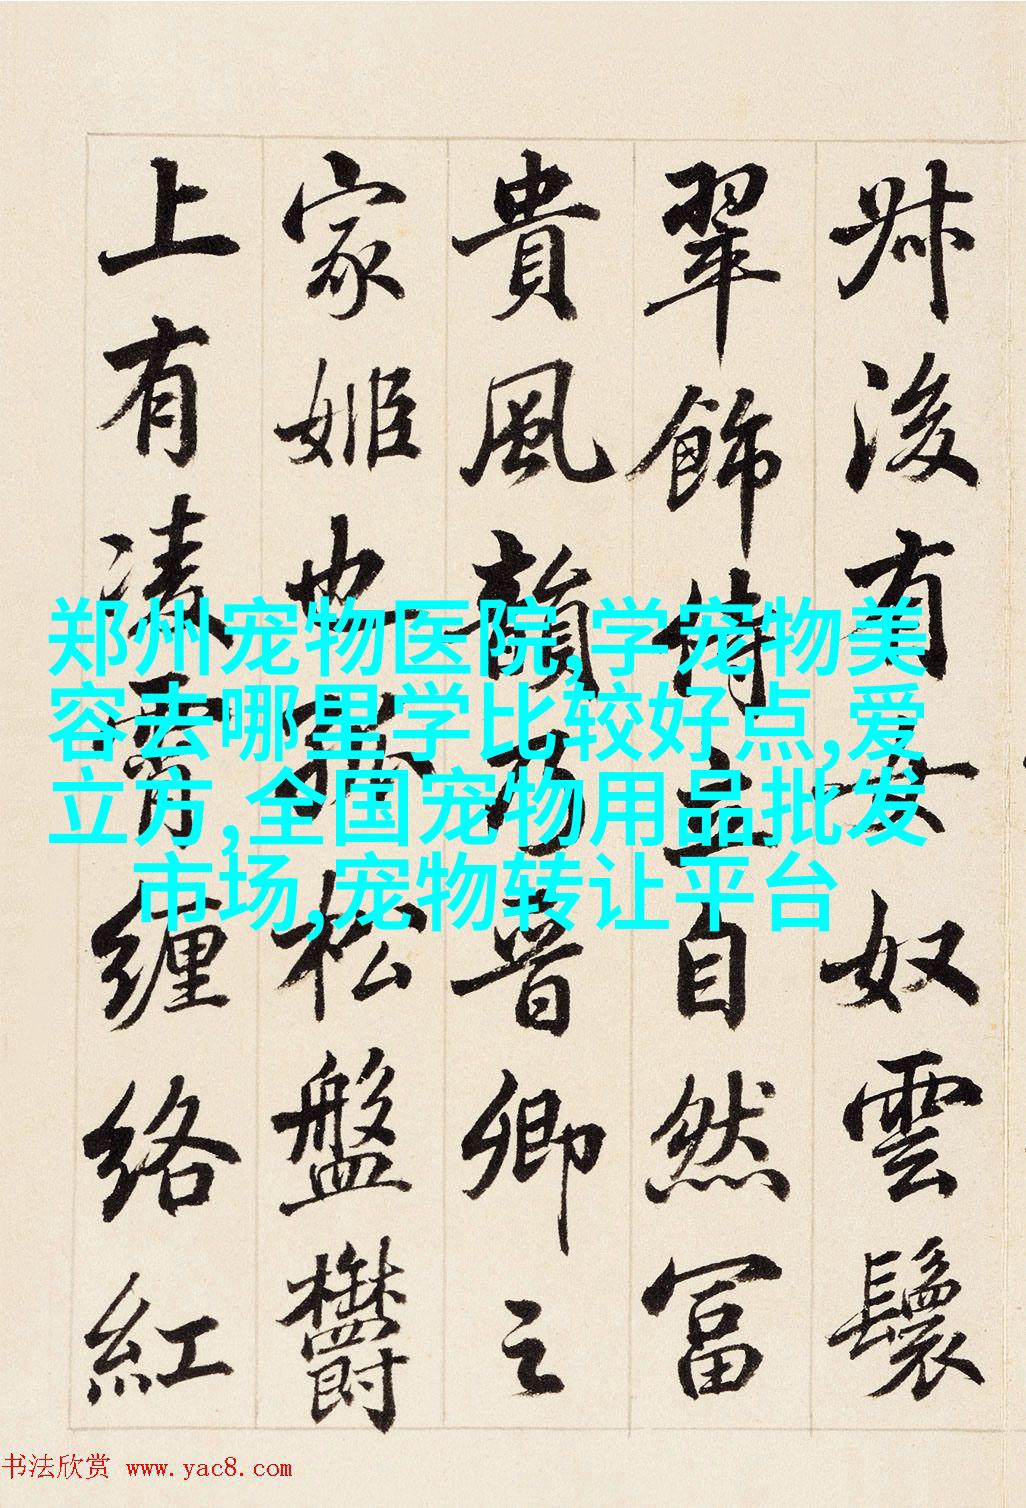 叔後有女奴雲鬟
翠飾侍立自然富
貴風韻乃晉卿之
家姬也孤松盤鬱
上有凌霄纏絡紅
郑州宠物医院,学宠物美
容去哪里学比较好点,爱
立方,全国宠物用品批发
市场,宠物转让平台
书法欣赏 www.yac8.com